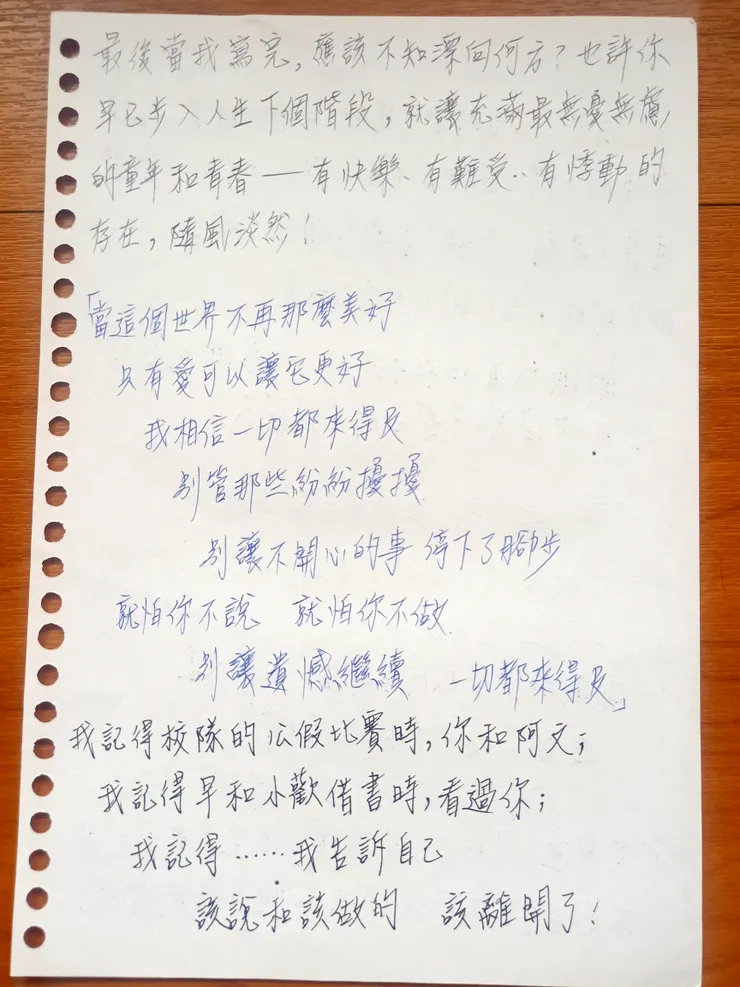 最後當我寫完，應該不知漂向何方？也許你
早已步入人生下個階段，就讓充滿最無憂無慮
的童年和青春——有快樂、有難受、有悸動的
存在，隨風淡然！
「當這個世界不再那麼美好
只有愛可以讓它更好
我相信一切都來得及
別管那些紛紛擾擾
別讓不開心的事 停下了腳步
就怕你不說 就怕你不做
別讓遺憾繼續 一切都來得及」
我記得校隊的公假比賽時，你和阿文；
我記得早和小歡借書時，看過你；
我記得……我告訴自己
該說和該做的 該離開了！